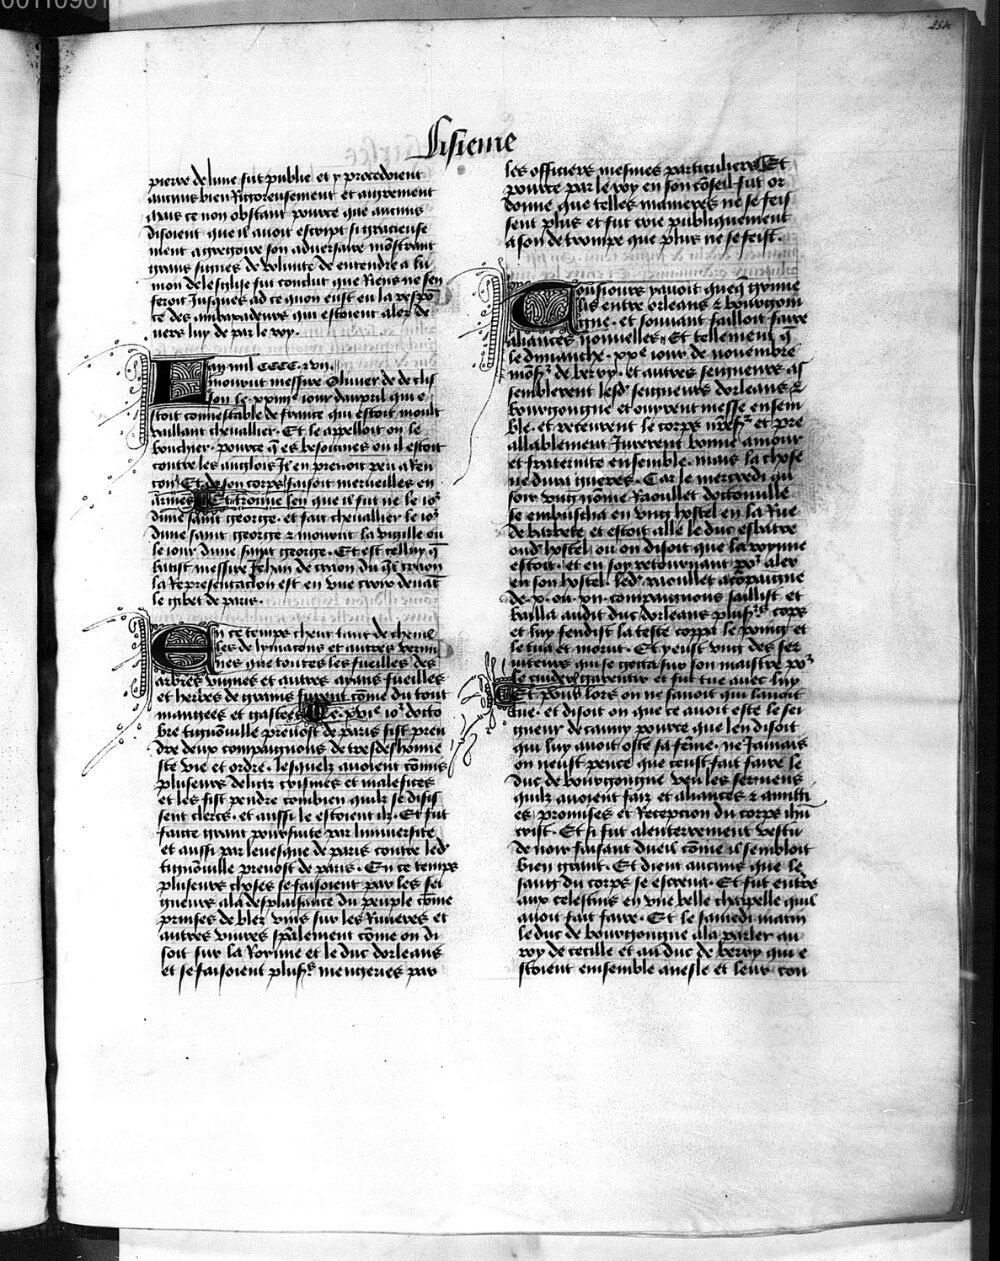 Sisieme
pierre de lune fut publie et y procedoient
aucuns bien Rigoreusement et aigrement
Mais ce non obstant pource que aucuns
disoient que il avoit escript si gracieuse
ment a gregoire son adversaire mo͞strant
grans signes de volunte de entendre a lu
nion de leglise fut conclut que Riens ne sen
feroit Jusques ad ce quon eust eu la respo͞
ce des ambaxadeurs qui estoient alez de
vers luy de par le roy.
Lan mil CCCC. vii.
mourut messire Olivier de clis
son le xxiiie iour dauril qui e
stoit connestable de france qui estoit moult
vaillant chevallier. Et le appelloit on le
bouchier. pource q̄ es besoinnes ou il estoit
contre les anglois Il en prenoit peu a Ren
con. Et de son corps faisoit merveilles en
armes Et trouue len que il fut ne le io2
dune saint george. et fait chevallier le io2
dune saint george et mourut la vigille ou
le iour dune saint george. Et est celluy q̄
batist messire Jehan de craon du q̄l craon
la Representacion est en une croix deuāt
le gibet de paris.
En ce temps cheut tant de chenil
les de lymacons et autres vermi
nes que toutes les fueilles des
arbres vignes et autres ayans fueilles
et herbes de grains furent cōme du tout
mangees et gastees Le. xvie io2 docto
bre tignonville prevost de paris fist pren
dre deux compaignons de tresdeshonne
ste vie et ordre. lesquelz avoient cōmis
pluseurs delitz crismes et malefices
et les fist pendre combien quilz se disis
sent clercs. et aussi le estoient ilz. Et fut
faicte grant poursuite par luniversite
et aussi par levesque de paris contre led
tignonville prevost de paris. En ce temps
pluseurs choses se faisoient par les sei
gneurs a la desplaisance du peuple cōme
prinses de blez vins sur les Rivieres et
autres vivres sp̄alement cōme on di
soit sur la Royne et le duc dorleans
et se faisoient plus2s mengeries par
les officiers mesmes particuliers Et
pource par le roy en son cōseil fut or
donne que telles manieres ne se feis
sent plus et fut crie publiquement
a son de trompe que plus ne se feist.
Tousiours y avoit quelq̄ grume
lis entre orleans et bourgoin
gne. et souvant failloit faire
aliances nouvelles. Et tellement q̄
le dimanche. xxe iour de novembre
mons2 de berry. et autres seigneurs as
semblerent lesd seigneurs dorleans et
bourgongne et ouyrent messe ensem
ble. et receurent le corps nr̄e s2 et pre
allablement Jurerent bonne amour
et fraternite ensemble. mais la chose
ne dura gueres. Car le mercredi au
soir ung nōme Raoullet doctonville
se embuscha en ung hostel en la Rue
de barbete et estoit alle le duc esbatre
oud hostel ou on disoit que la royne
estoit. et en soy retournant po2 aler
en son hostel. led raoullet acōpaigne
de. x. ou. xii. compaignons saillist et
bailla audit duc dorleans plus2s cops
et luy fendist la teste coppa le poing et
le tua et morut. Et y eust ung des ser
viteurs qui se getta sur son maistre po2
le cuider garentir et fut tue avec luy
Et pour lors on ne savoit qui lavoit
tue. et disoit on que ce avoit este le sei
gneur de canny pource que len disoit
qui luy avoit oste sa fēme. ne Jamais
on neust pence que leust fait faire le
duc de bourgongne veu les sermens
quilz avoient faiz et aliances et amiti
es promises et Reception du corps ih̄u
crist. Et si fut a lenterrement vestu
de noir faisant dueil cōme il sembloit
bien grant. Et dient aucuns que le
sang du corps se escreva. Et fut enterre
aux celestins en une belle chappelle quil
avoit fait faire. Et le samedi matin
le duc de bourgongne ala parler au
roy de cecille et au duc de berry qui e
stoient ensemble a nesle et leur con